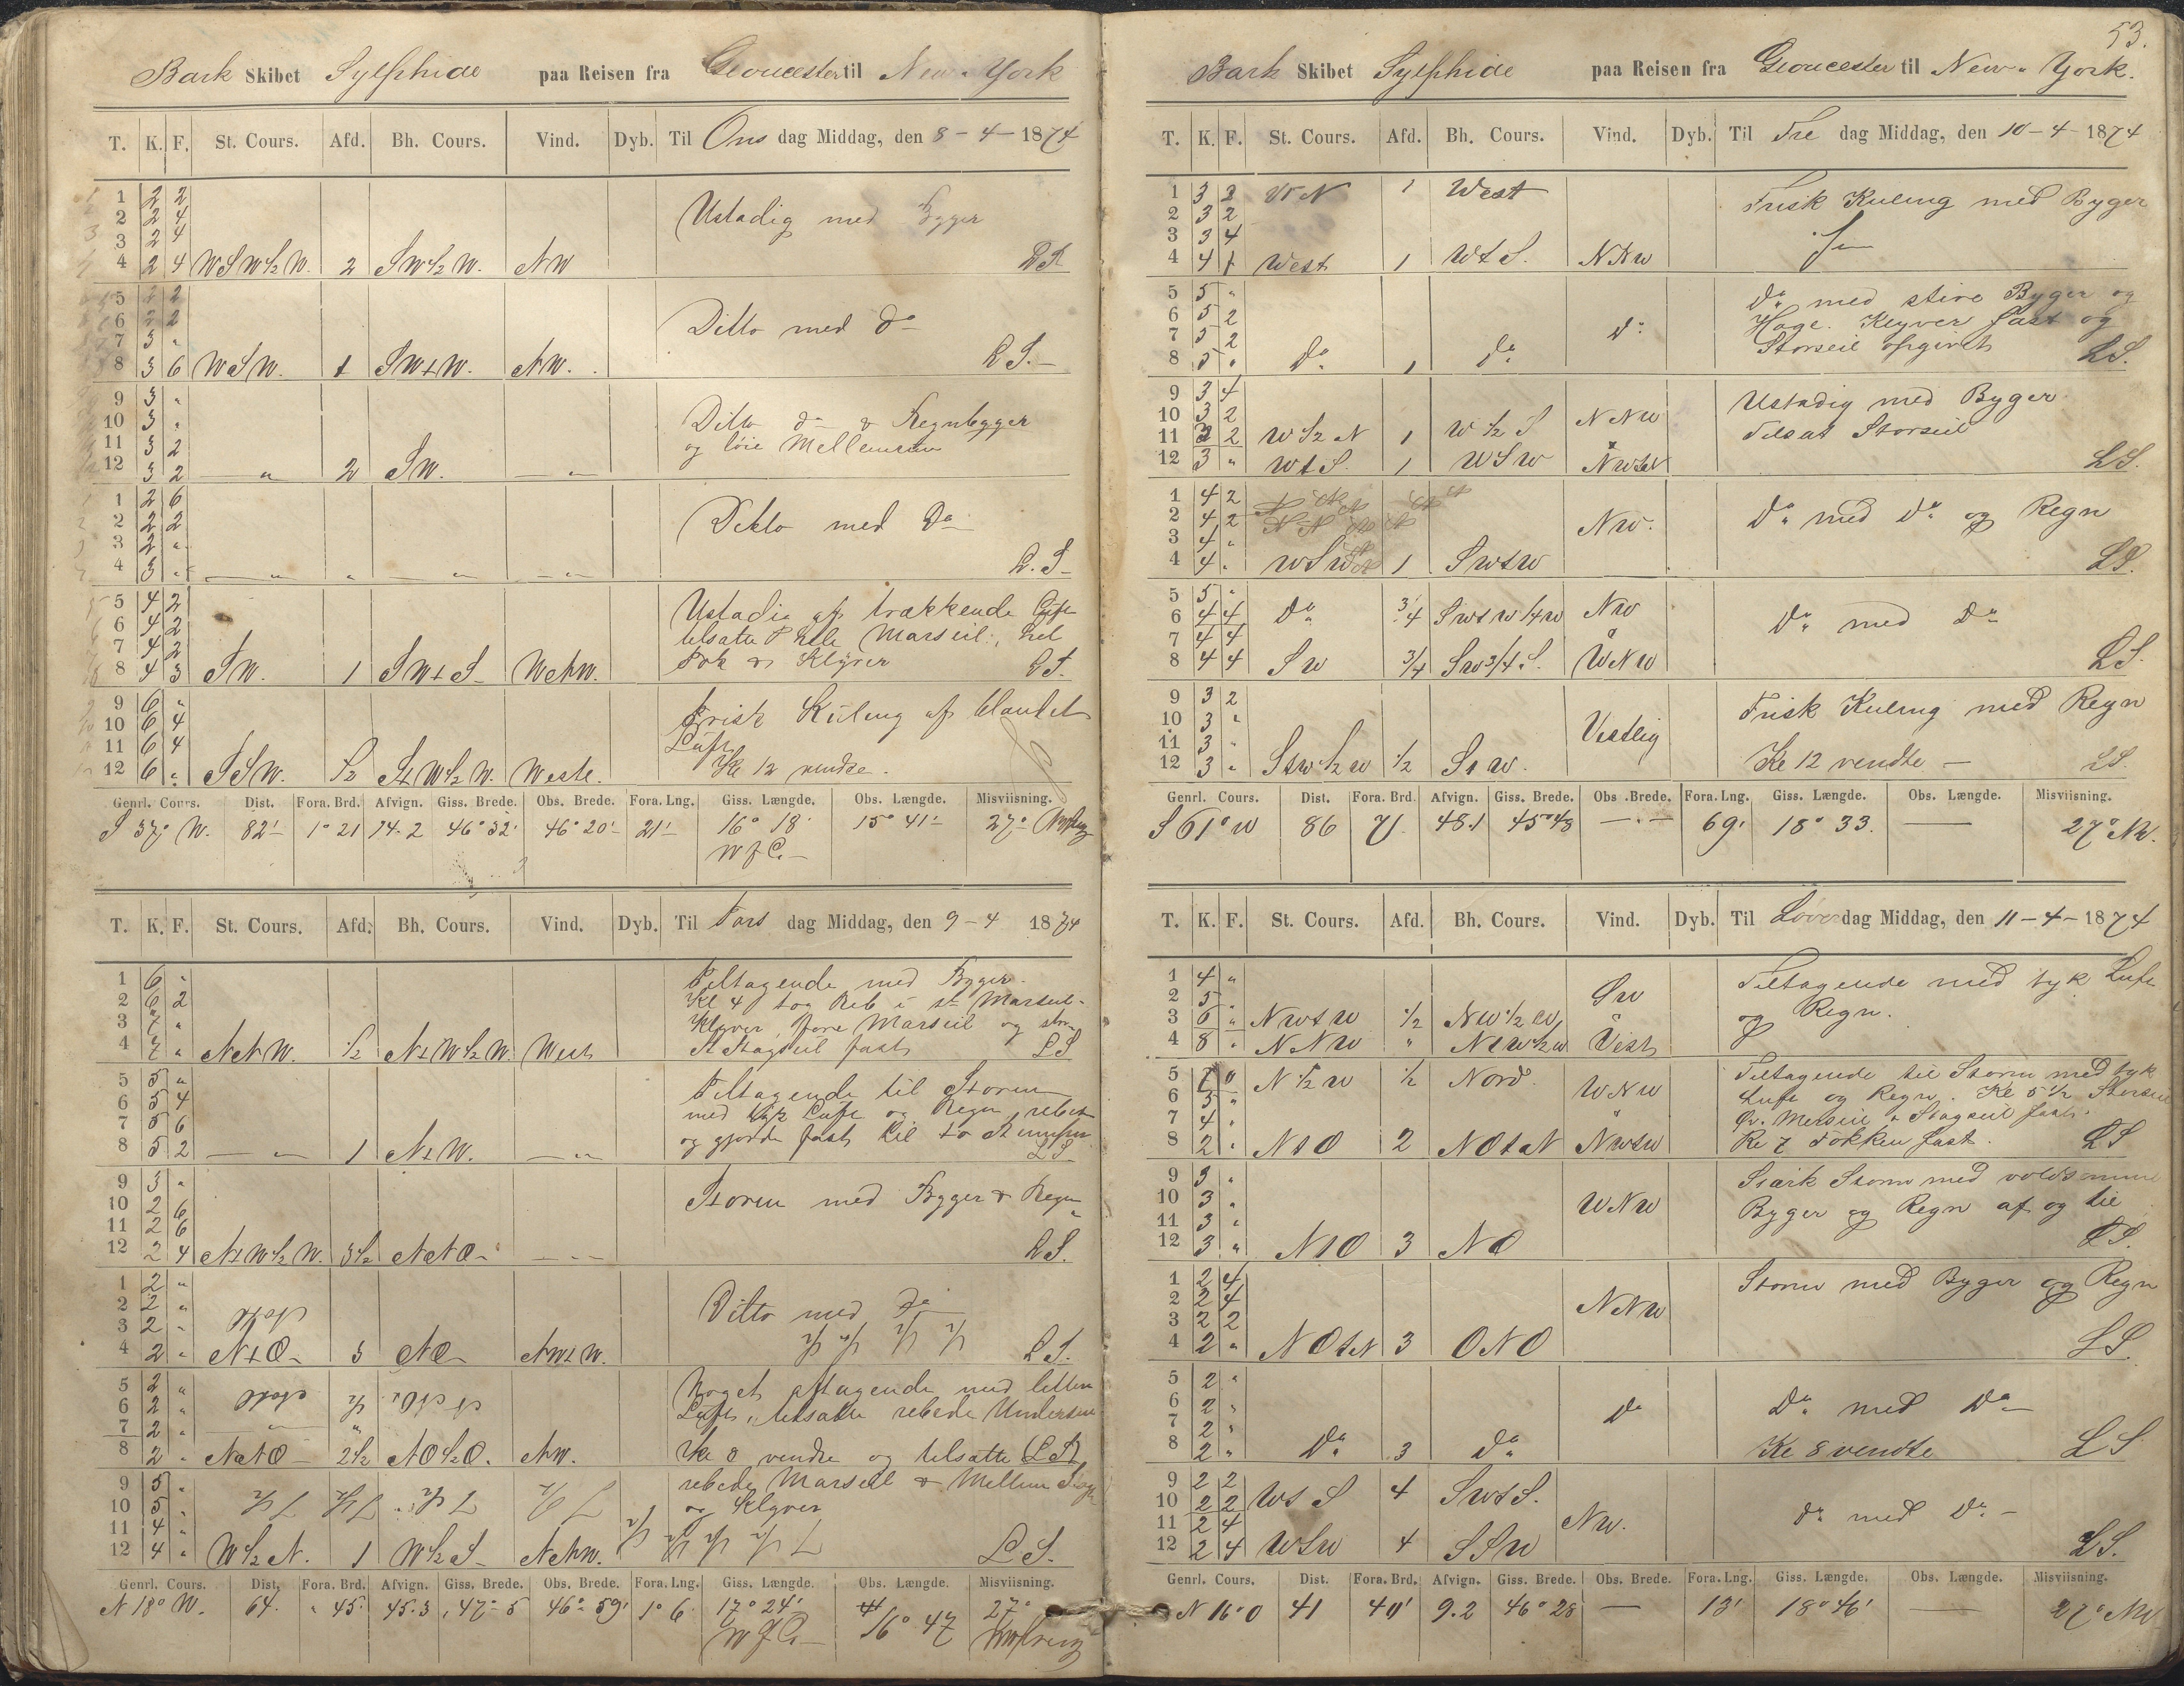 Bark Skibet Sylphide paa Reisen fra Gloucester til New-York
T. K. F. St. Cours. Afd. Bh. Cours. Vind. Dyb. Til Ons dag Middag, den 8-4-1874
1 2 2 Ustadig med Bygger
2 2 4
3 2 4
4 2 4 WSW½W. 2 SW½W. NW LS
5 2 2
6 2 2 Ditto med do
7 3 "
8 3 6 WSW. 1 SWtW. NW. LS.
9 3 " Ditto do & Regnbygger
10 3 " og løie Mellemrum
11 3 2
12 3 2 " 2 SW. "
1 2 6
2 2 2 Ditto med Do
3 2 "
4 3 " " " " " L.S
5 4 2 Ustadig af trækkende Luft
6 4 2 tilsatte Hele Marseil, hel
7 4 2 Fok & Klyver
8 4 3 SW. 1 SWtS WNW. LS.
9 6 " Frisk Kuling af blandet
10 6 4 Luft
11 6 4 Kl 12 vendte.
12 6 " SSW. ½ StW½W. Westl.
Genrl. Cours. Dist. Fora. Brd. Afvign. Giss. Brede. Obs. Brede. Fora. Lng. Giss. Længde. Obs. Længde. Misviisning.
S 37° W. 82' 1° 21 74.2 46° 32' 46° 20' 21' 16° 18' 15° 41' 27°
T. K. F. St. Cours. Afd. Bh. Cours. Vind. Dyb. Til Tors dag Middag, den 9-4 1874
1 6 " Tiltagende med Bygger
2 6 2 Kl 4 tog Reb i st Marseil
3 7 " Klyver, Fore Marseil og stor
4 7 " NNW. ½ NtW½W. West Stagseil fast LS
5 5 " Tiltagende til Storm
6 5 4 med tyk Luft og Regn, rebet
7 5 6 og gjorde fast
8 5 2 " 1 NtW. " LS
9 3 " Storm med Bygger & Regn
10 2 6
11 2 6
12 2 4 NtW½W. 3½ NNO " LS.
1 2 "
2 2 " Ditto med Do
3 2 "
4 2 " NtO 3 NO NWtW. LS.
5 2 " Noget aftagende med letten
6 2 " Luft, tilsatte rebede Underseil
7 2 "
8 2 " NNO 2½ NO½O. NW. Kl 8 vendte og tilsatte LS
9 5 " rebede Marseil & Mellem Stags
10 5 " og Klyver
11 4 "
12 4 " W½N. 1 W½S NNW. LS.
Genrl. Cours. Dist. Fora. Brd. Afvign. Giss. Brede. Obs. Brede. Fora. Lng. Giss. Længde. Obs. Længde. Misviisning.
N 18° W. 64. " 45. 45.3 47° 5 46° 59' 1° 6 17° 24' 16° 47 27°
53.
Bark Skibet Sylphide paa Reisen fra Gloucester til New-York.
T. K. F. St. Cours. Afd. Bh. Cours. Vind. Dyb. Til Fre dag Middag, den 10-4-1874
1 3 2 WtN 1 West Frisk Kuling med Byger
2 3 2
3 3 4
4 4 1 West 1 WtS. NNW
5 5 " Do med stive Byger og
6 5 2 Hage. Klyver fast og
7 5 2 Do Storseil opgivet
8 5 " Do 1 Do LS.
9 3 4 Ustadig med Byger
10 3 2 NNW Tilsat Storseil
11 2 2 W½N 1 W½S
12 3 " WtS. 1 WSW NWtW LS.
1 4 2
2 4 2 NW. Do med Do og Regn
3 4 "
4 4 " WSW 1 SWtW LS.
5 5 "
6 4 4 Do ¾ SWtW¼W NW Do med Do
7 4 4
8 4 4 SW ¾ SW¾S. WNW LS.
9 3 2 Frisk Kuling med Regn
10 3 " Vestlig
11 3 "
12 3 " StW½W ½ StW. Kl 12 vendte LS
Genrl. Cours. Dist. Fora. Brd. Afvign. Giss. Brede. Obs. Brede. Fora. Lng. Giss. Længde. Obs. Længde. Misviisning.
S 61° W 86 71. 48.1 45° 48 — 69' 18° 33. — 27° NW.
T. K. F. St. Cours. Afd. Bh. Cours. Vind. Dyb. Til Løver dag Middag, den 11-4-1874
1 4 " Tiltagende med tyk Luft
2 5 " SW og Regn.
3 6 " NWtW ½ NW½W
4 8 " NNW " NtW½W Vest
5 7 0 N½W ½ Nord. WNW Tiltagende til Storm med tyk
6 5 " Luft og Regn. Kl 5½ Storseil
7 4 " Gr. Merseil & Stagseil fast.
8 2 " NtO 2 NOtN NWtW Kl 7 Fokken fast. LS
9 3 " Stærk Storm med voldsomme
10 3 " WNW Byger og Regn af og til
11 3 "
12 3 " NtO 3 NO LS.
1 2 4 Storm med Byger og Regn
2 2 4 NNW
3 2 2
4 2 " NOtN 3 ONO LS.
5 2 "
6 2 " Do Do med Do
7 2 "
8 2 " Do 3 Do Kl 8 vendte LS
9 2 2
10 2 2 WtS 4 SWtS.
11 2 4 NW. Do med Do
12 2 4 WSW 4 SSW LS.
Genrl. Cours. Dist. Fora. Brd. Afvign. Giss. Brede. Obs. Brede. Fora. Lng. Giss. Længde. Obs. Længde. Misviisning.
N 16° O 41 40' 9.2 46° 28 — 13' 18° 46' — 27° NW